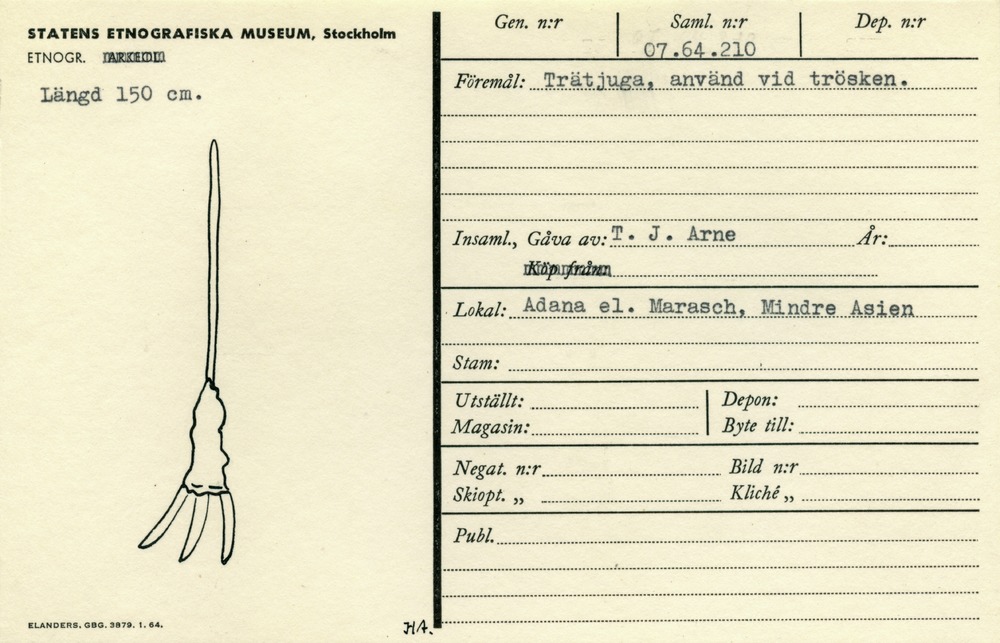 STATENS ETNOGRAFISKA MUSEUM, Stockholm
ETNOGR. ARKEOL.
Längd 150 cm.
ELANDERS. GBG. 3879. 1. 64.
HA.
Gen. n:r Saml. n:r Dep. n:r
07.64.210
Föremål: Trätjuga, använd vid trösken.
Insaml., Gåva av: T. J. Arne År:
Köp från:
Lokal: Adana el. Marasch, Mindre Asien
Stam:
Utställt: Depon:
Magasin: Byte till:
Negat. n:r Bild n:r
Skiopt. „ Kliché „
Publ.